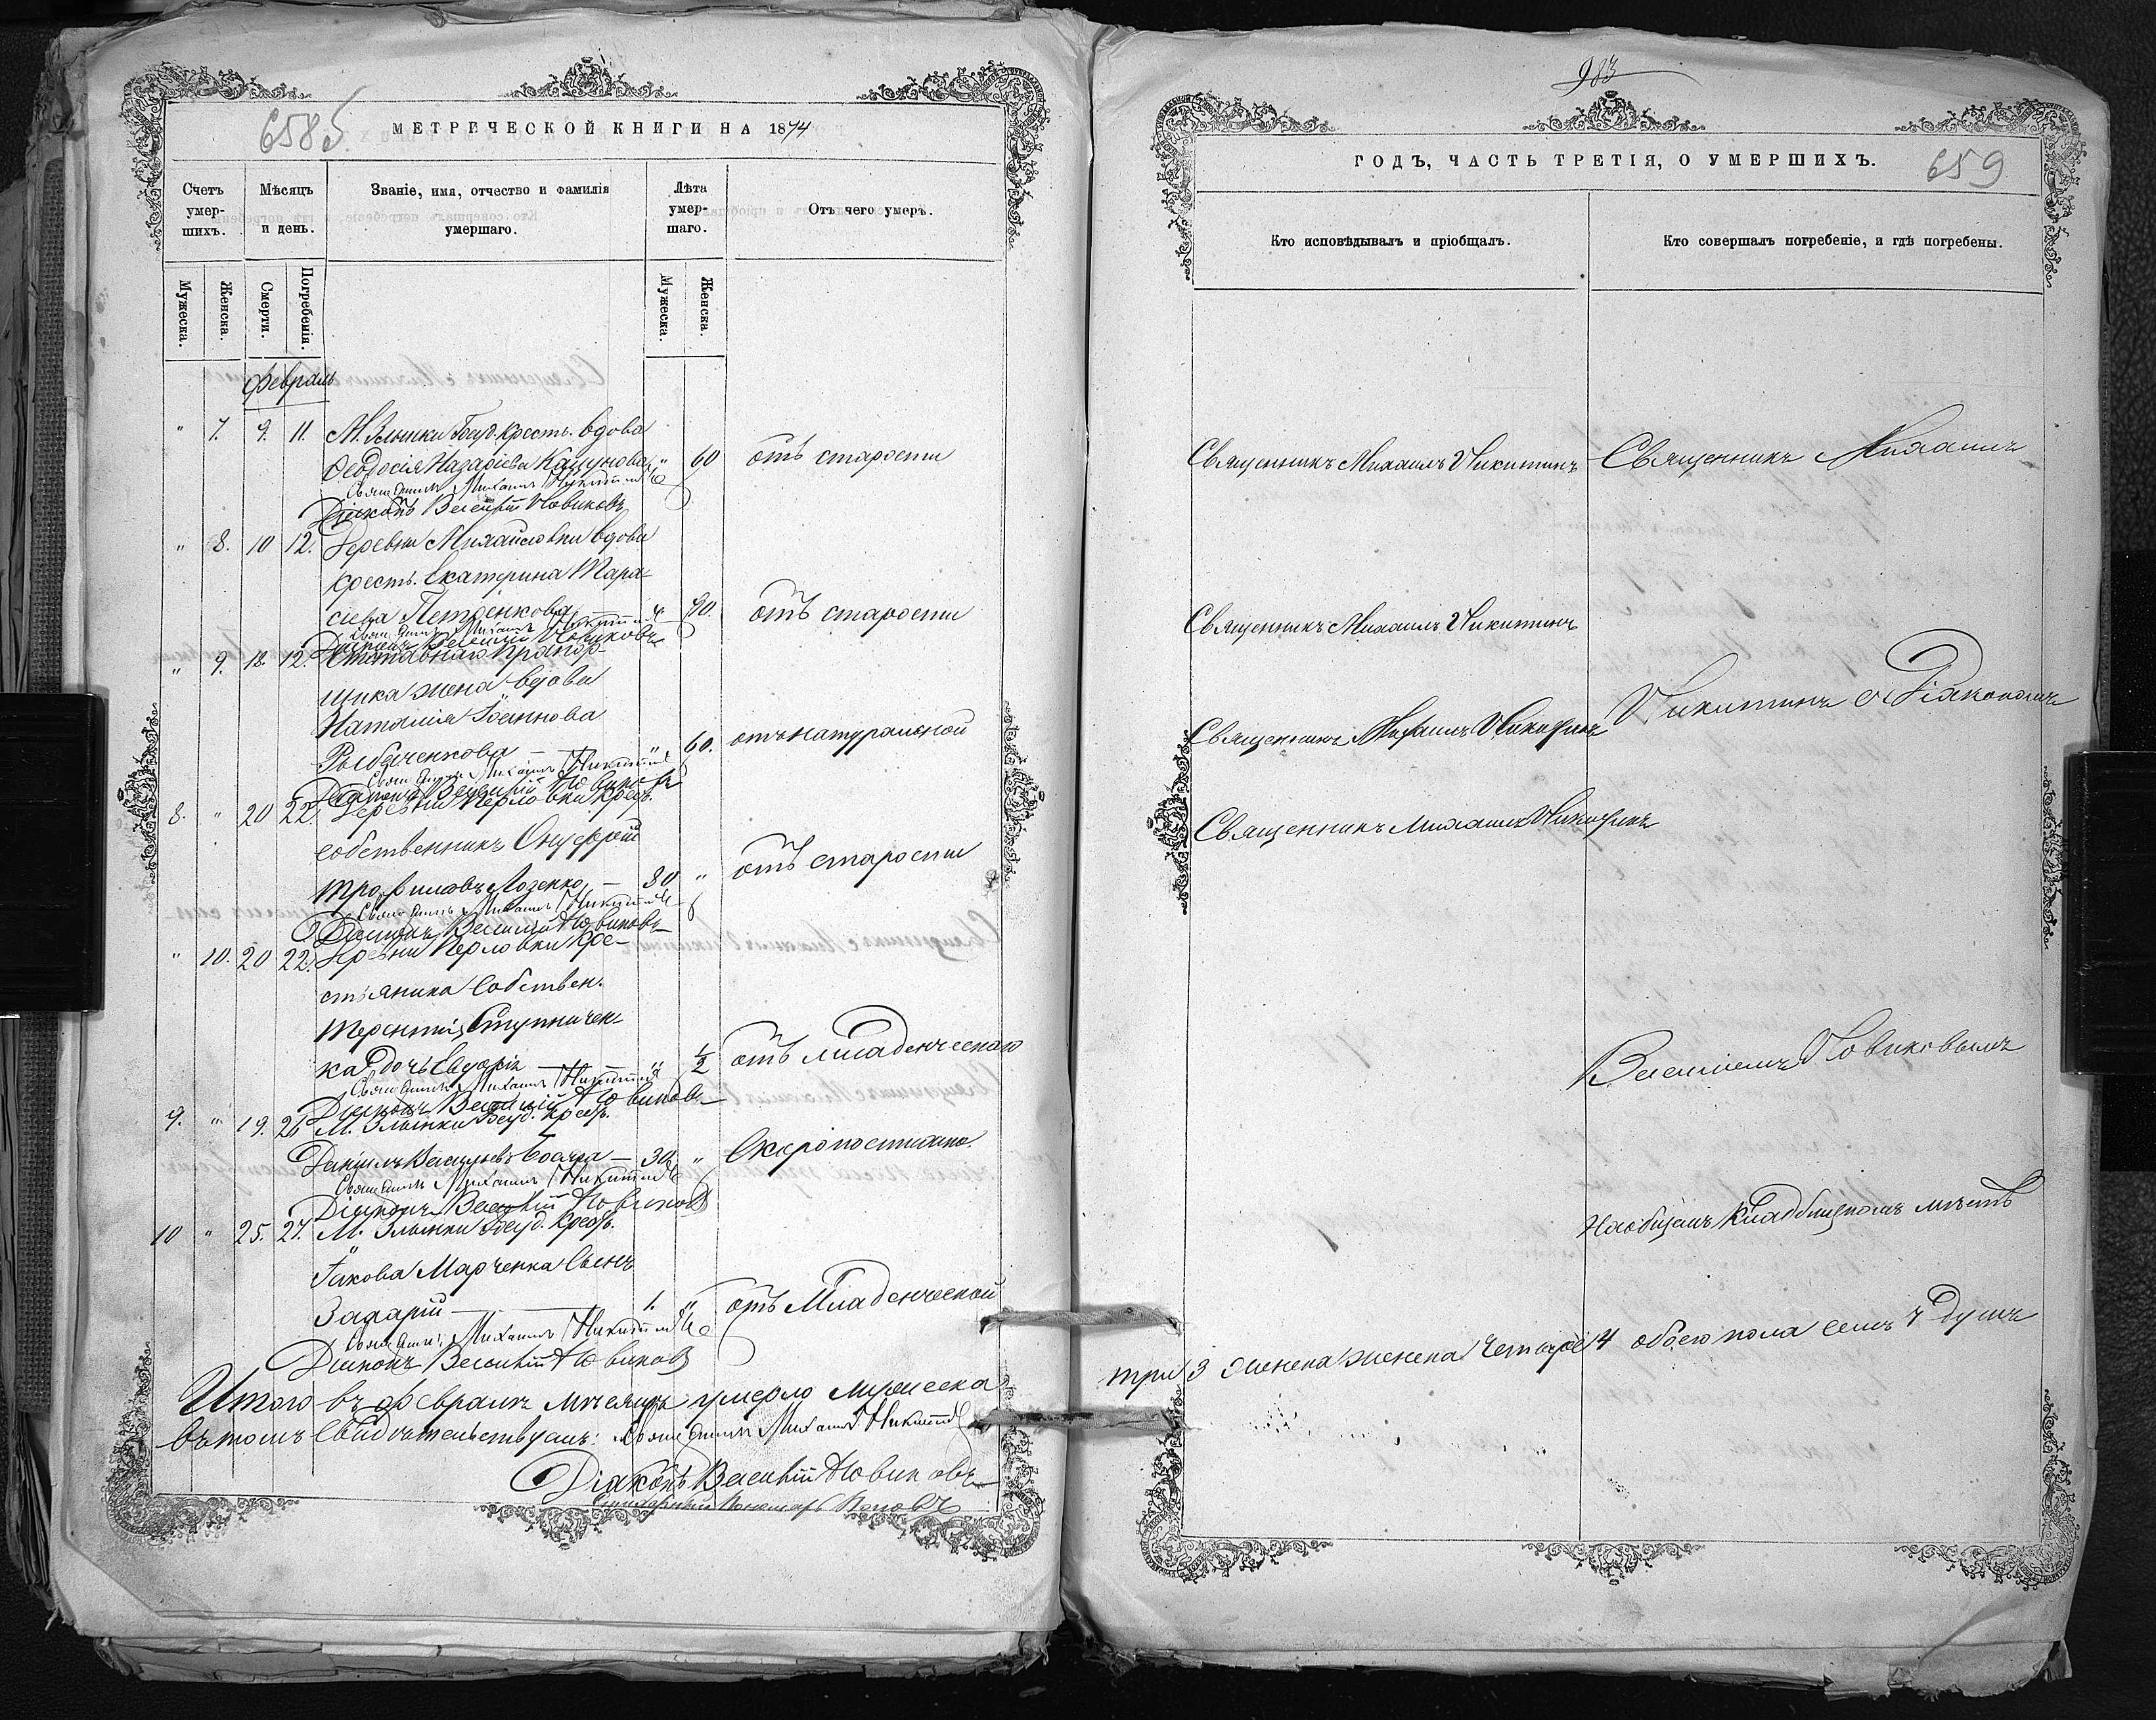 658 б.
МЕТРИЧЕСКОЙ КНИГИ НА 1874
Счетъ умер-шихъ.
Мѣсяцъ и день.
Званіе, имя, отчество и фамилія умершаго.
Лѣта умер-шаго.
Отъ чего умеръ.
Мужеска.
Женска.
Смерти.
Погребенія.
Мужеска.
Женска.
Февраль
" 7. 9. 11. М. Злынки Госуд. крест. вдова
Ѳеодосія Назаріева " 60 отъ старости
Священникъ Михаилъ Никитинъ
Діаконъ Василій Новиковъ
" 8. 10 12. Деревни Михайловки вдова
крест. Екатерина Тара-
сіева " 90. отъ старости
Священникъ Михаилъ Никитинъ
Діаконъ Василій Новиковъ
" 9. 12. Отставнаго Прапор-
щика жена вдова
Наталія Іоаннова
Рыбаченкова — " 60. отъ натуральной
Священникъ Михаилъ Никитинъ
Діаконъ Василій Новиковъ
8. " 20 22. Деревни Перловки крест.
собственникъ Онуфрій
Трофимовъ Лозенко — 80 " отъ старости
Священникъ Михаилъ Никитинъ
Діаконъ Василій Новиковъ
" 10. 20 22. Деревни Перловки кре-
стьянина собствен.
Терентія Ступничен-
ка дочь Евдокія — " ½ отъ младенческой
Священникъ Михаилъ Никитинъ
Діаконъ Василій Новиковъ
9. " 19. 26 М. Злынки Госуд. крест.
Даніилъ Васильевъ — 30 " Скоропостижно.
Священникъ Михаилъ Никитинъ
Діаконъ Василій Новиковъ
10 " 25. 27. М. Злынки Госуд. крест.
Іакова Марченка сынъ
Захарій — 1. " отъ Младенческой
Священникъ Михаилъ Никитинъ
Діаконъ Василій Новиковъ
Итого въ февралѣ мѣсяцѣ умерло мужеска
въ томъ свидѣтельствуемъ: Священникъ Михаилъ Никитинъ
Діаконъ Василій Новиковъ
983
ГОДЪ, ЧАСТЬ ТРЕТІЯ, О УМЕРШИХЪ.
659
Кто исповѣдывалъ и пріобщалъ.
Кто совершалъ погребеніе, и гдѣ погребены.
Священникъ Михаилъ Никитинъ
Священникъ Михаилъ
Священникъ Михаилъ Никитинъ
Никитинъ съ Діакономъ
Священникъ Михаилъ Никитинъ
Священникъ Михаилъ Никитинъ
Василіемъ Новиковымъ
На общемъ кладбищномъ мѣстѣ
три 3 женска четыре 4 обоего пола семь 7 душъ